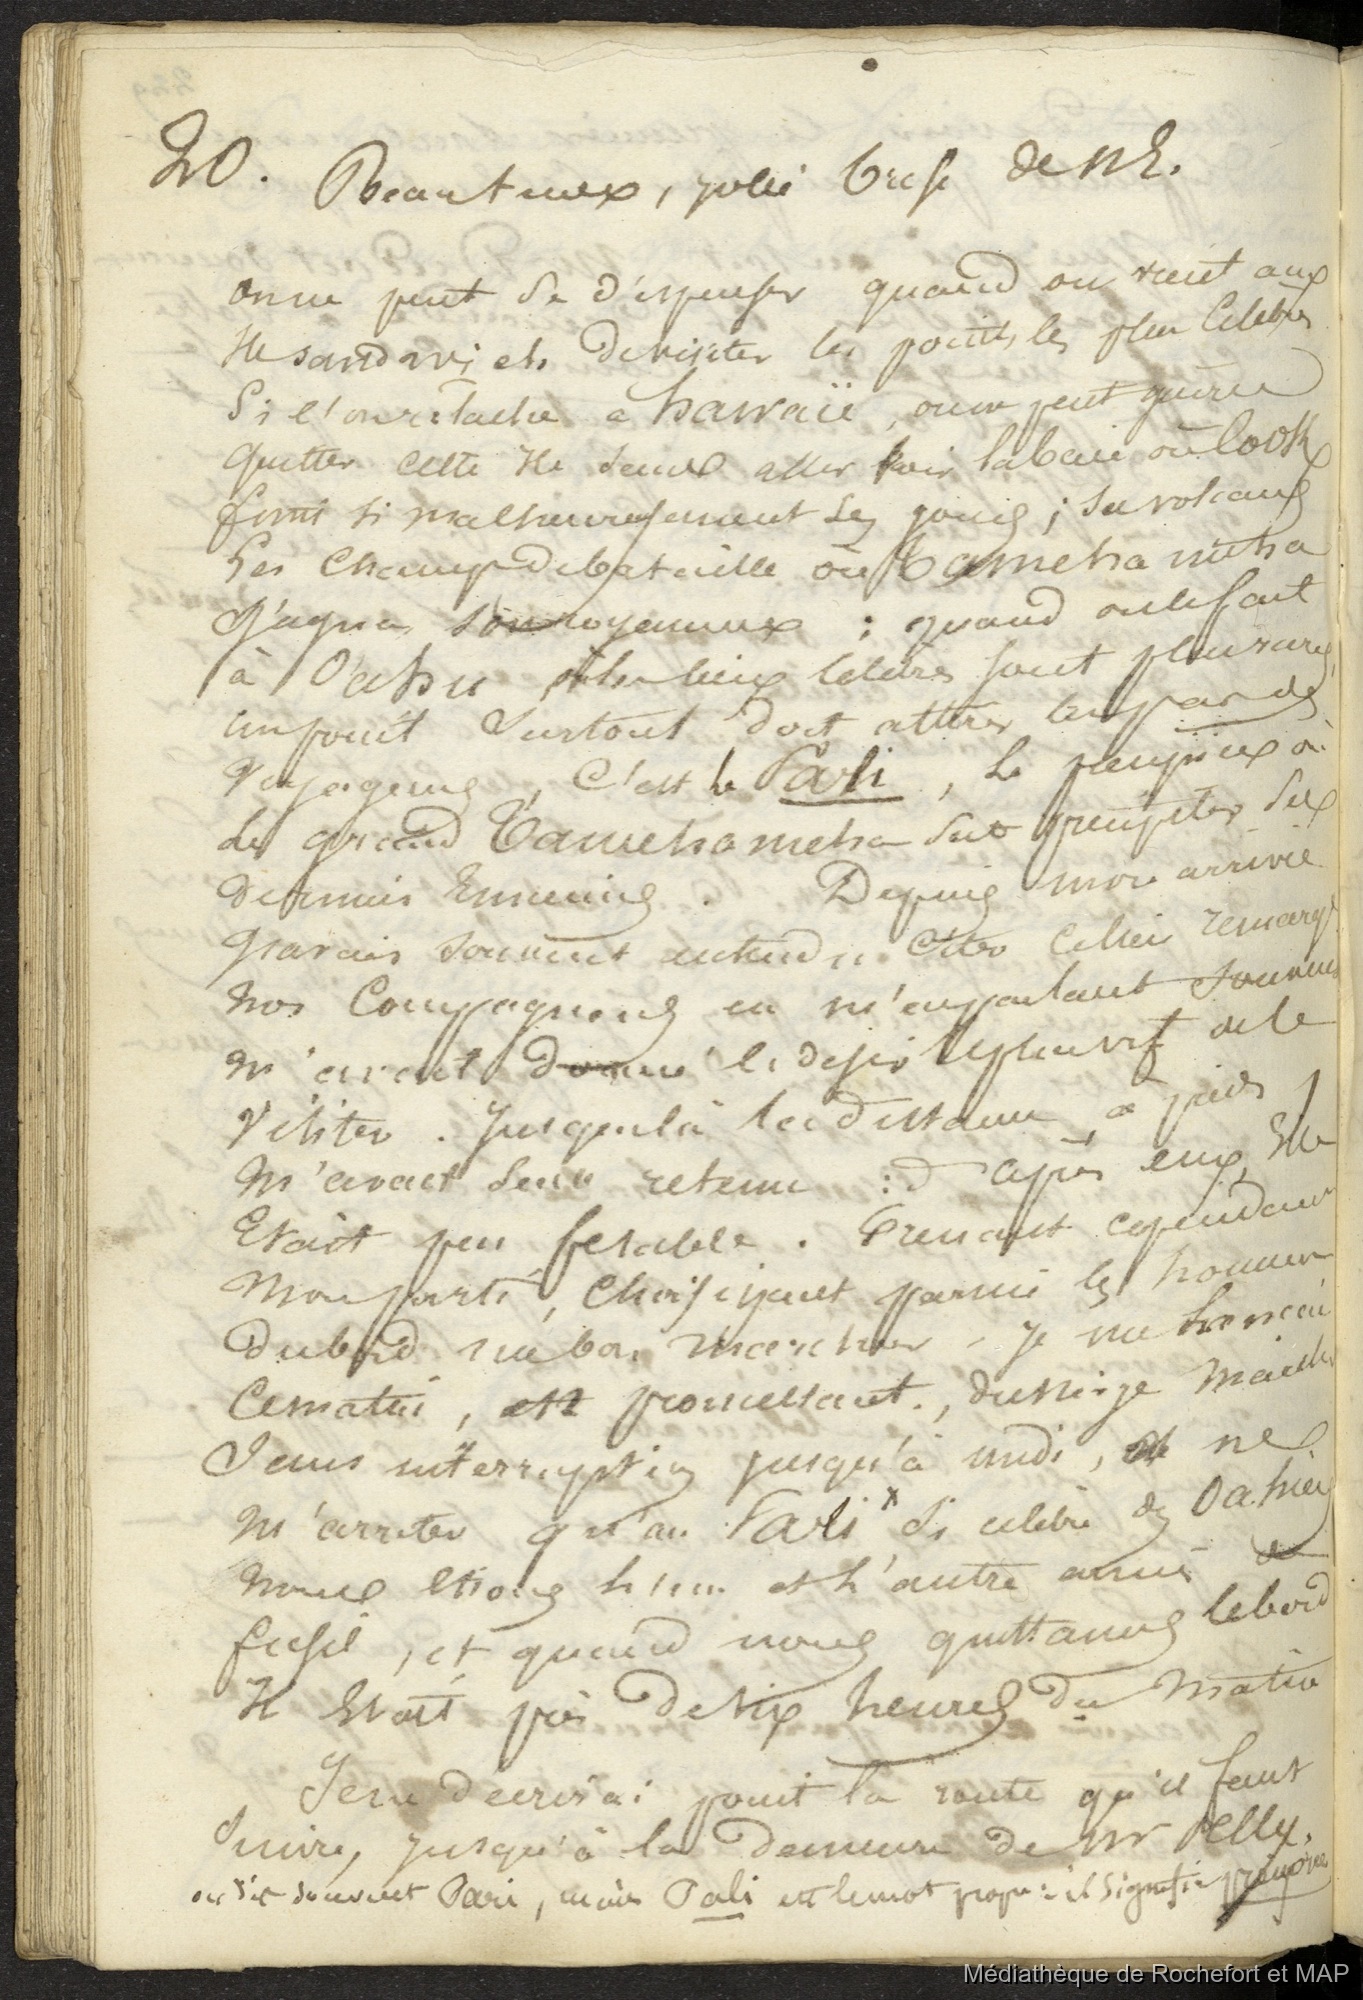 20. Beau temps, jolie brise de NE.
on ne peut se dispenser quand on vient aux
Ile sandwich de visiter les points les plus celebres
Si l'on relache a hawaii, on ne peut guère
quitter cette Ile sans aller voir la baie où Cook
finit si malheureusement ses jours ; ses volcans
Ses Champ de bataille où Tameha meha
gagna son royaume : quand on le fait
à O'ahu les lieux celebres sont plus rares,
un point surtout doit attirer les pas des
Voyageurs, C'est le Pali, le précipice où
Le grand Tamehameha fit precipiter ses
derniers Ennemis. Depuis mon arrivée
J'avais souvent entendu citer ce lieu remarq
Nos Compagnons en m'en parlant souvent
m'avait donné le desir le plus vif de le
Visiter. Jusque là la distance, à pied,
m'avait seule retenu : d'après eux, Elle
Etait peu fesable. Prenant cependant
Mon parti, Choisissant parmi les hommes
du bord un bon marcheur, je me lançai
Ce matin, promettant, dussé-je marcher
Sans interruption jusqu'à midi, de ne
m'arreter qu'au Pali x si celebre d'Oahu
nous étions l'un et l'autre armés de
fusil, et quand nous quittames le bord
Il Etait près de six heures du matin
Je ne decrirai point la route qu'il faut
Suivre, jusqu'à la demeure de Mr Pelly.
on dit souvent Pari, mais Pali est le mot propre : il signifie précipice
Médiathèque de Rochefort et MAP